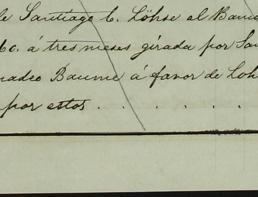 de Santiago C. Löhse al Banco
&c. á tres meses girada por San
madeo Baume á favor de Löh
por estos . . . . . . .